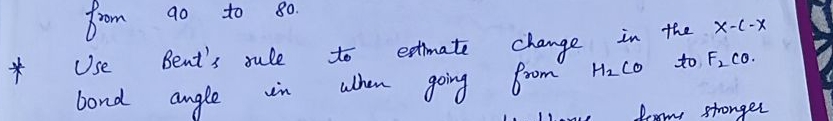 from 90 to 80.
* Use Bent's rule to estimate change in the X-C-X
bond angle in when going from H2CO to F2CO.
forms stronger